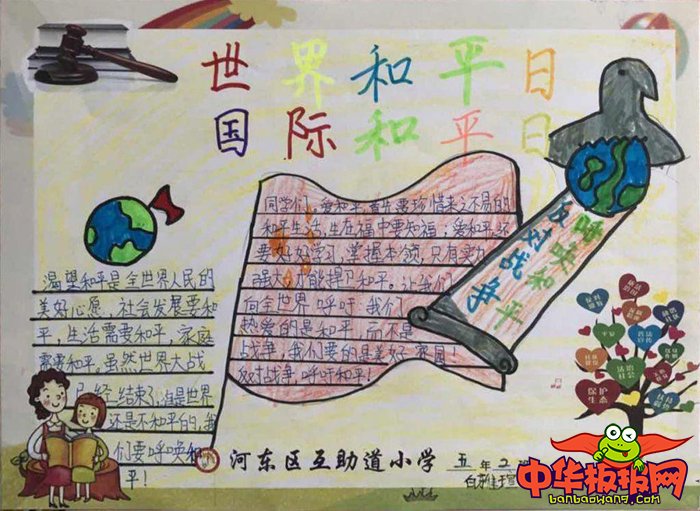 世界和平日
国际和平日
同学们，爱和平，首先要珍惜来之不易的
和平生活，生在福中要知福；爱和平，还
要好好学习，掌握本领，只有实力
强大，才能捍卫和平。让我们
向全世界呼吁，我们
热爱的是和平，而不是
战争，我们要的是美好家园！
反对战争，呼吁和平！
呼唤和平
反对战争
渴望和平是全世界人民的
美好心愿，社会发展要和
平，生活需要和平，家庭
需要和平，虽然世界大战
已经结束了，但是世界
还是不和平的，我
们要呼唤和
平！
保护
生态
法治
社会
河东区互助道小学
五年2
中华板报网
banbaowang.com